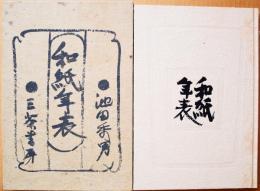 和紙年表
池田秀男
三茶書房
和紙
年表